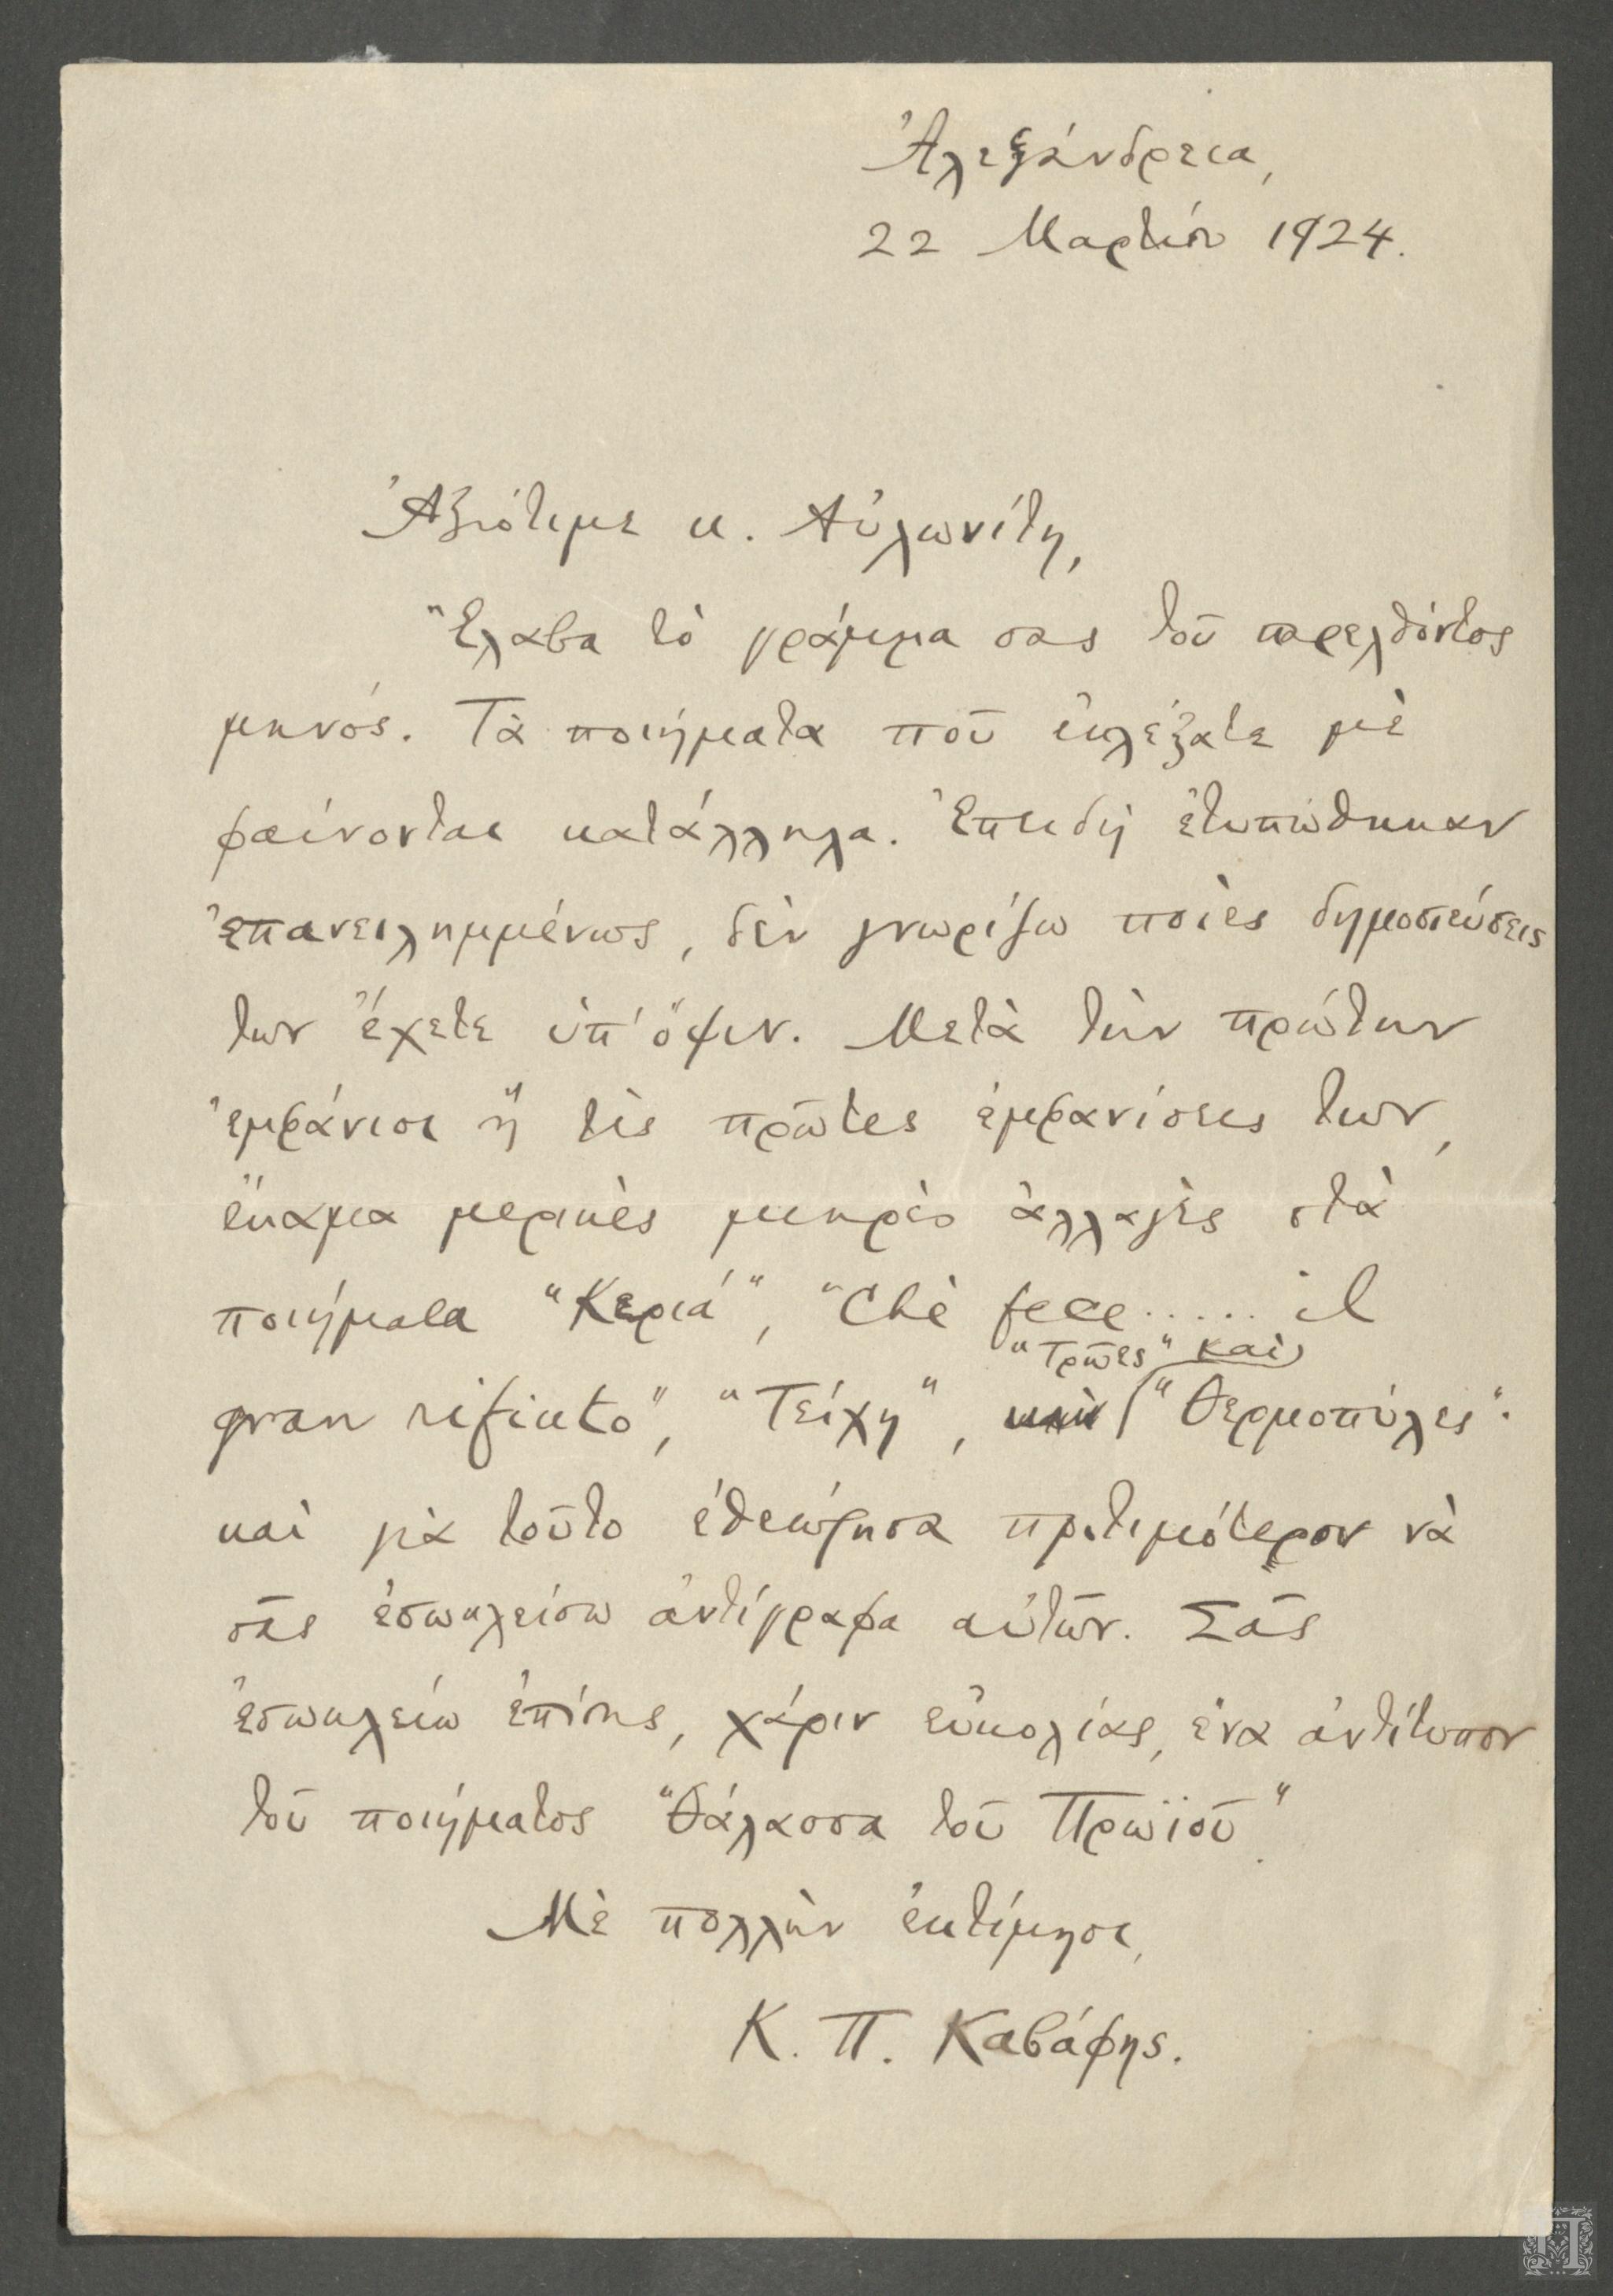 Ἀλεξάνδρεια,
22 Μαρτίου 1924.
Ἀξιότιμε κ. Αὐλωνίτη,
Ἔλαβα τὸ γράμμα σας τοῦ παρελθόντος
μηνός. Τὰ ποιήματα ποῦ ἐκλέξατε μὲ
φαίνονται κατάλληλα. Ἐπειδὴ ἐτυπώθηκαν
ἐπανειλημμένως, δὲν γνωρίζω ποιὲς δημοσιεύσεις
των ἔχετε ὑπ' ὄψιν. Μετὰ τὴν πρώτην
ἐμφάνισι ἢ τὲς πρῶτες ἐμφανίσεις των,
ἔκαμα μερικὲς μικρὲς ἀλλαγὲς στὰ
ποιήματα “Κεριά”, “Che fece ..... il
“Τρῶες” καὶ
gran rifiuto”, “Τείχη”, “Θερμοπύλες”·
καὶ γιὰ τοῦτο ἐθεώρησα προτιμότερον νὰ
σᾶς ἐσωκλείσω ἀντίγραφα αὐτῶν. Σᾶς
ἐσωκλείω ἐπίσης, χάριν εὐκολίας, ἕνα ἀντίτυπον
τοῦ ποιήματος “Θάλασσα τοῦ Πρωϊοῦ”.
Μὲ πολλὴν ἐκτίμησι,
Κ. Π. Καβάφης.